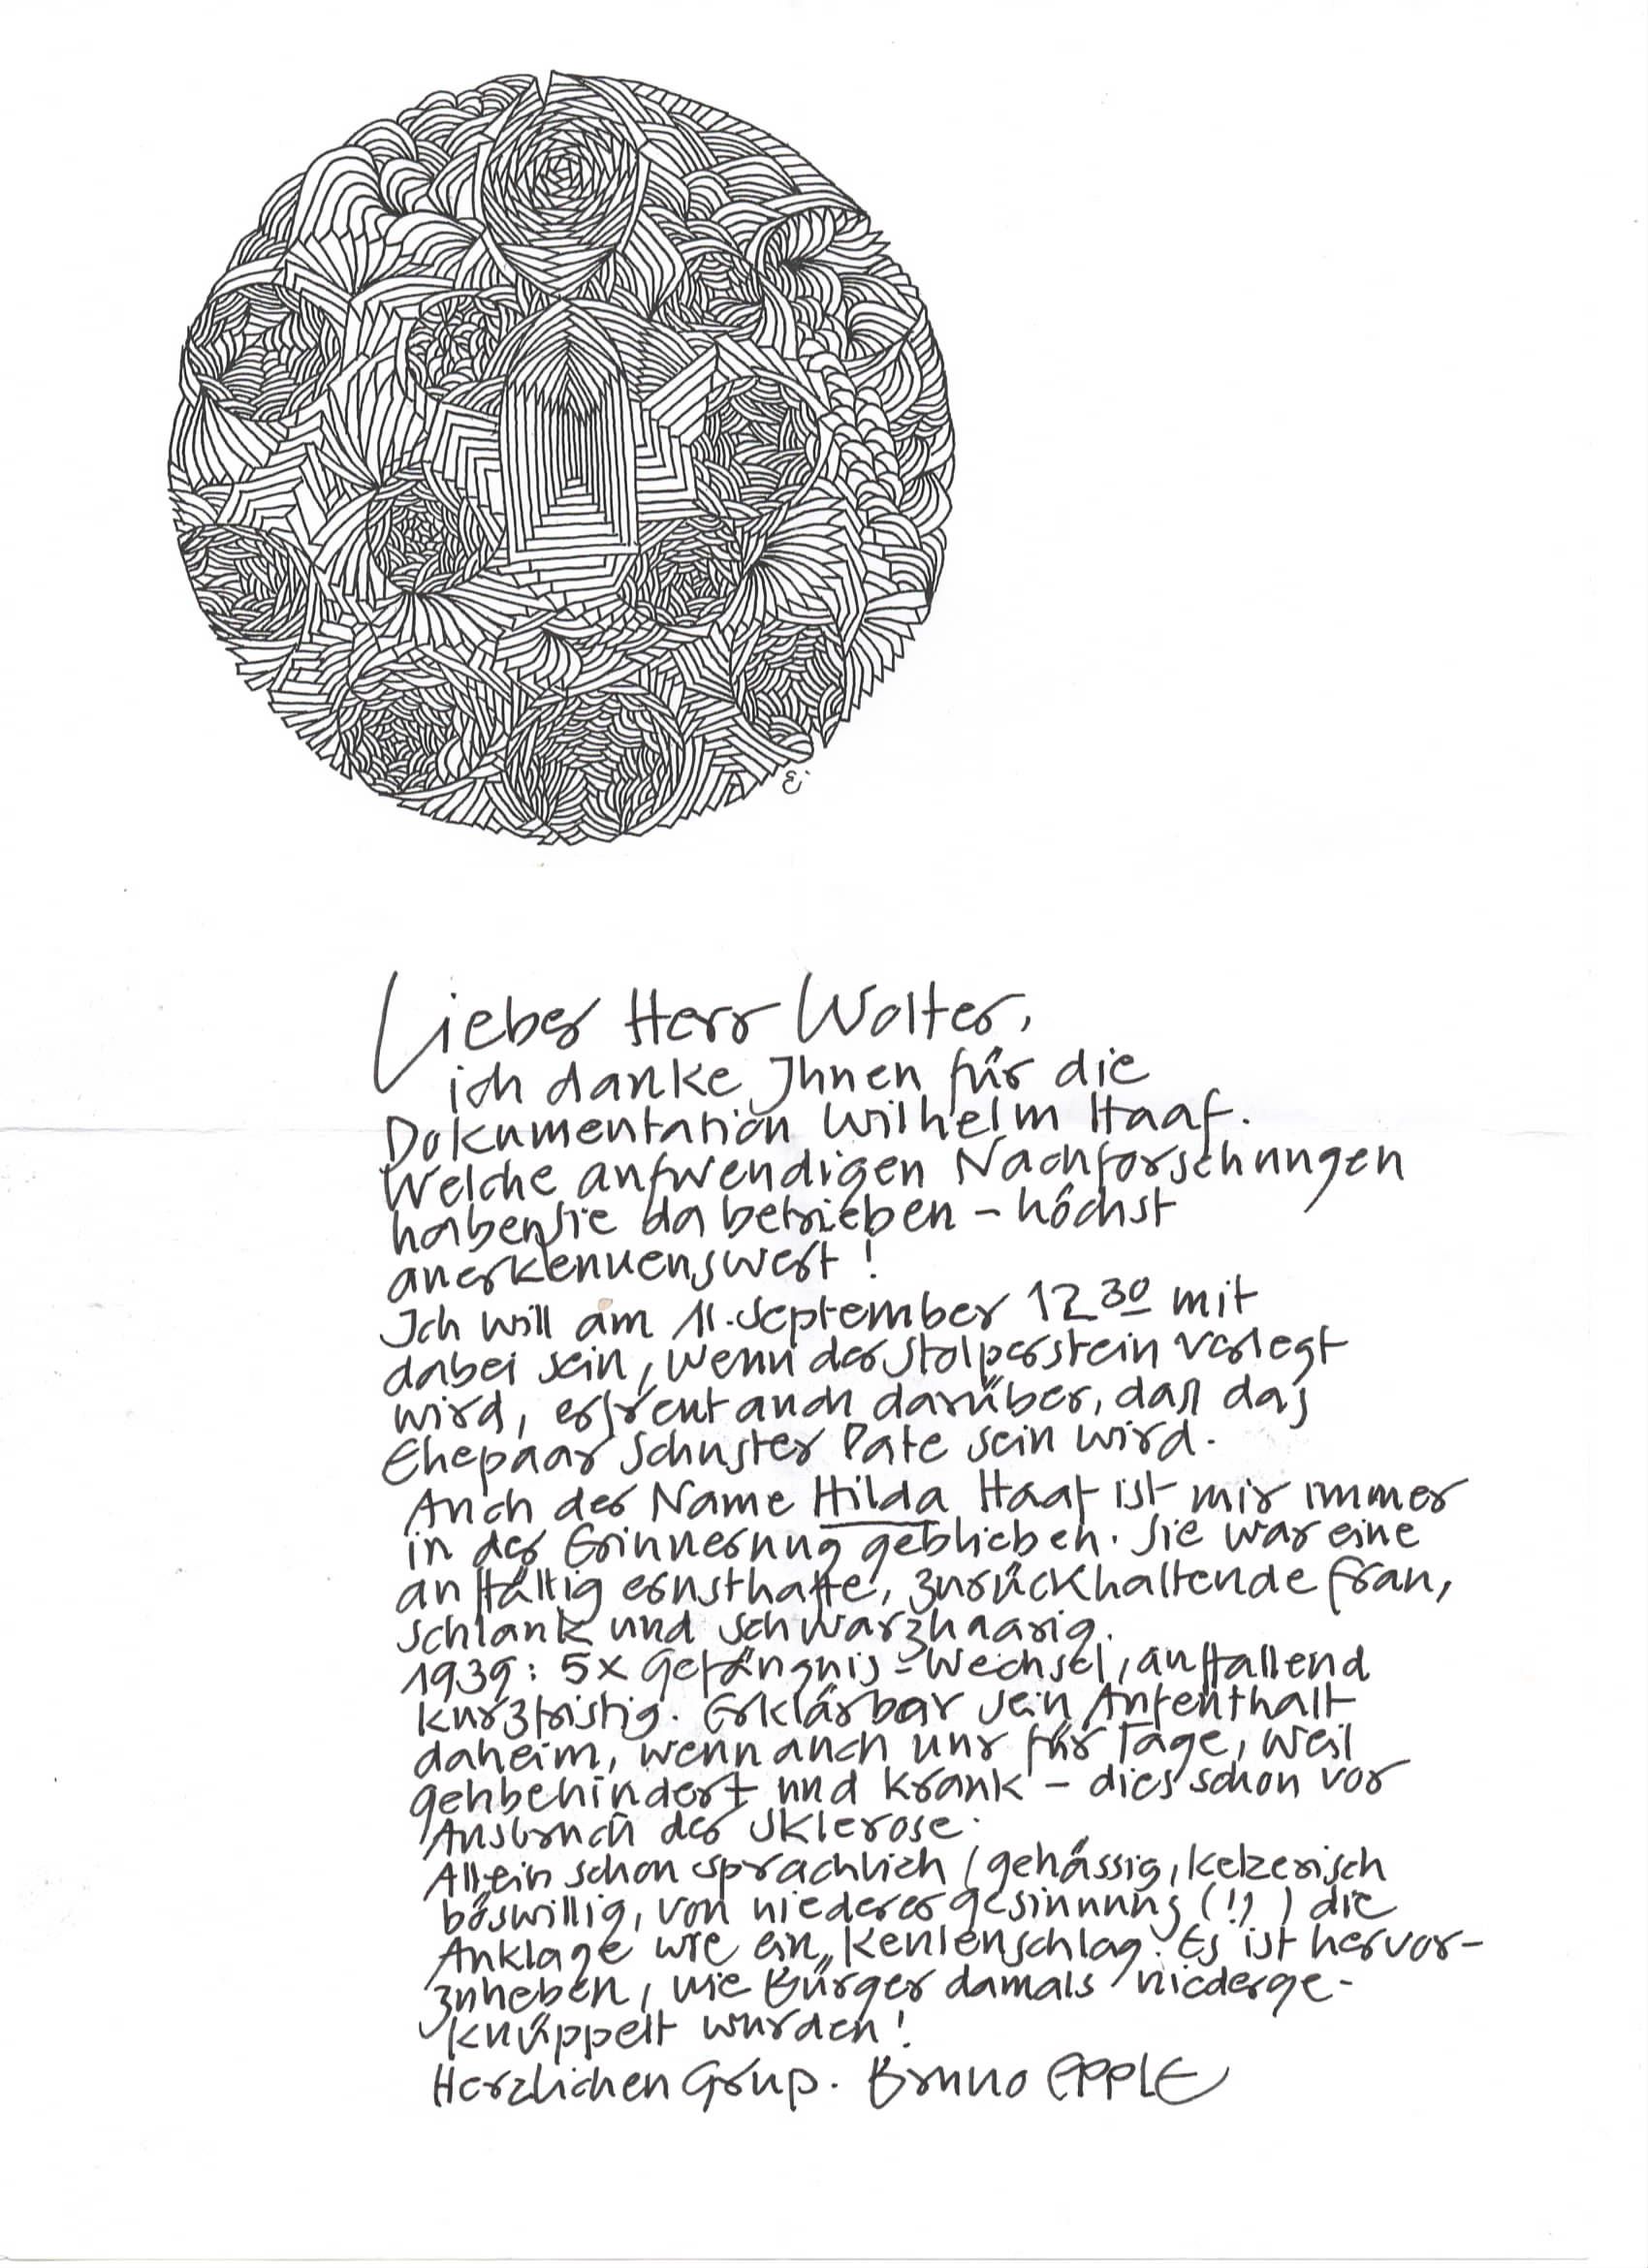 Ei
Lieber Herr Wolter,
ich danke Ihnen für die
Dokumentation Wilhelm Haaf.
Welche aufwendigen Nachforschungen
haben Sie da betrieben – höchst
anerkennenswert!
Ich will am 11. September 12 30 mit
dabei sein, wenn der Stolperstein verlegt
wird, erfreut auch darüber, daß das
Ehepaar Schuster Pate sein wird.
Auch der Name Hilda Haaf ist mir immer
in der Erinnerung geblieben. Sie war eine
auffällig ernsthafte, zurückhaltende Frau,
schlank und schwarzhaarig.
1939: 5x Gefängnis-Wechsel, auffallend
kurzfristig. Erklärbar sein Aufenthalt
daheim, wenn auch nur für Tage, weil
gehbehindert und krank – dies schon vor
Ausbruch der Sklerose.
Allein schon sprachlich (gehässig, ketzerisch
böswillig, von niederer Gesinnung (!) ) die
Anklage wie ein Keulenschlag. Es ist hervor-
zuheben, wie Bürger damals niederge-
knüppelt wurden!
Herzlichen Gruß. Bruno Epple